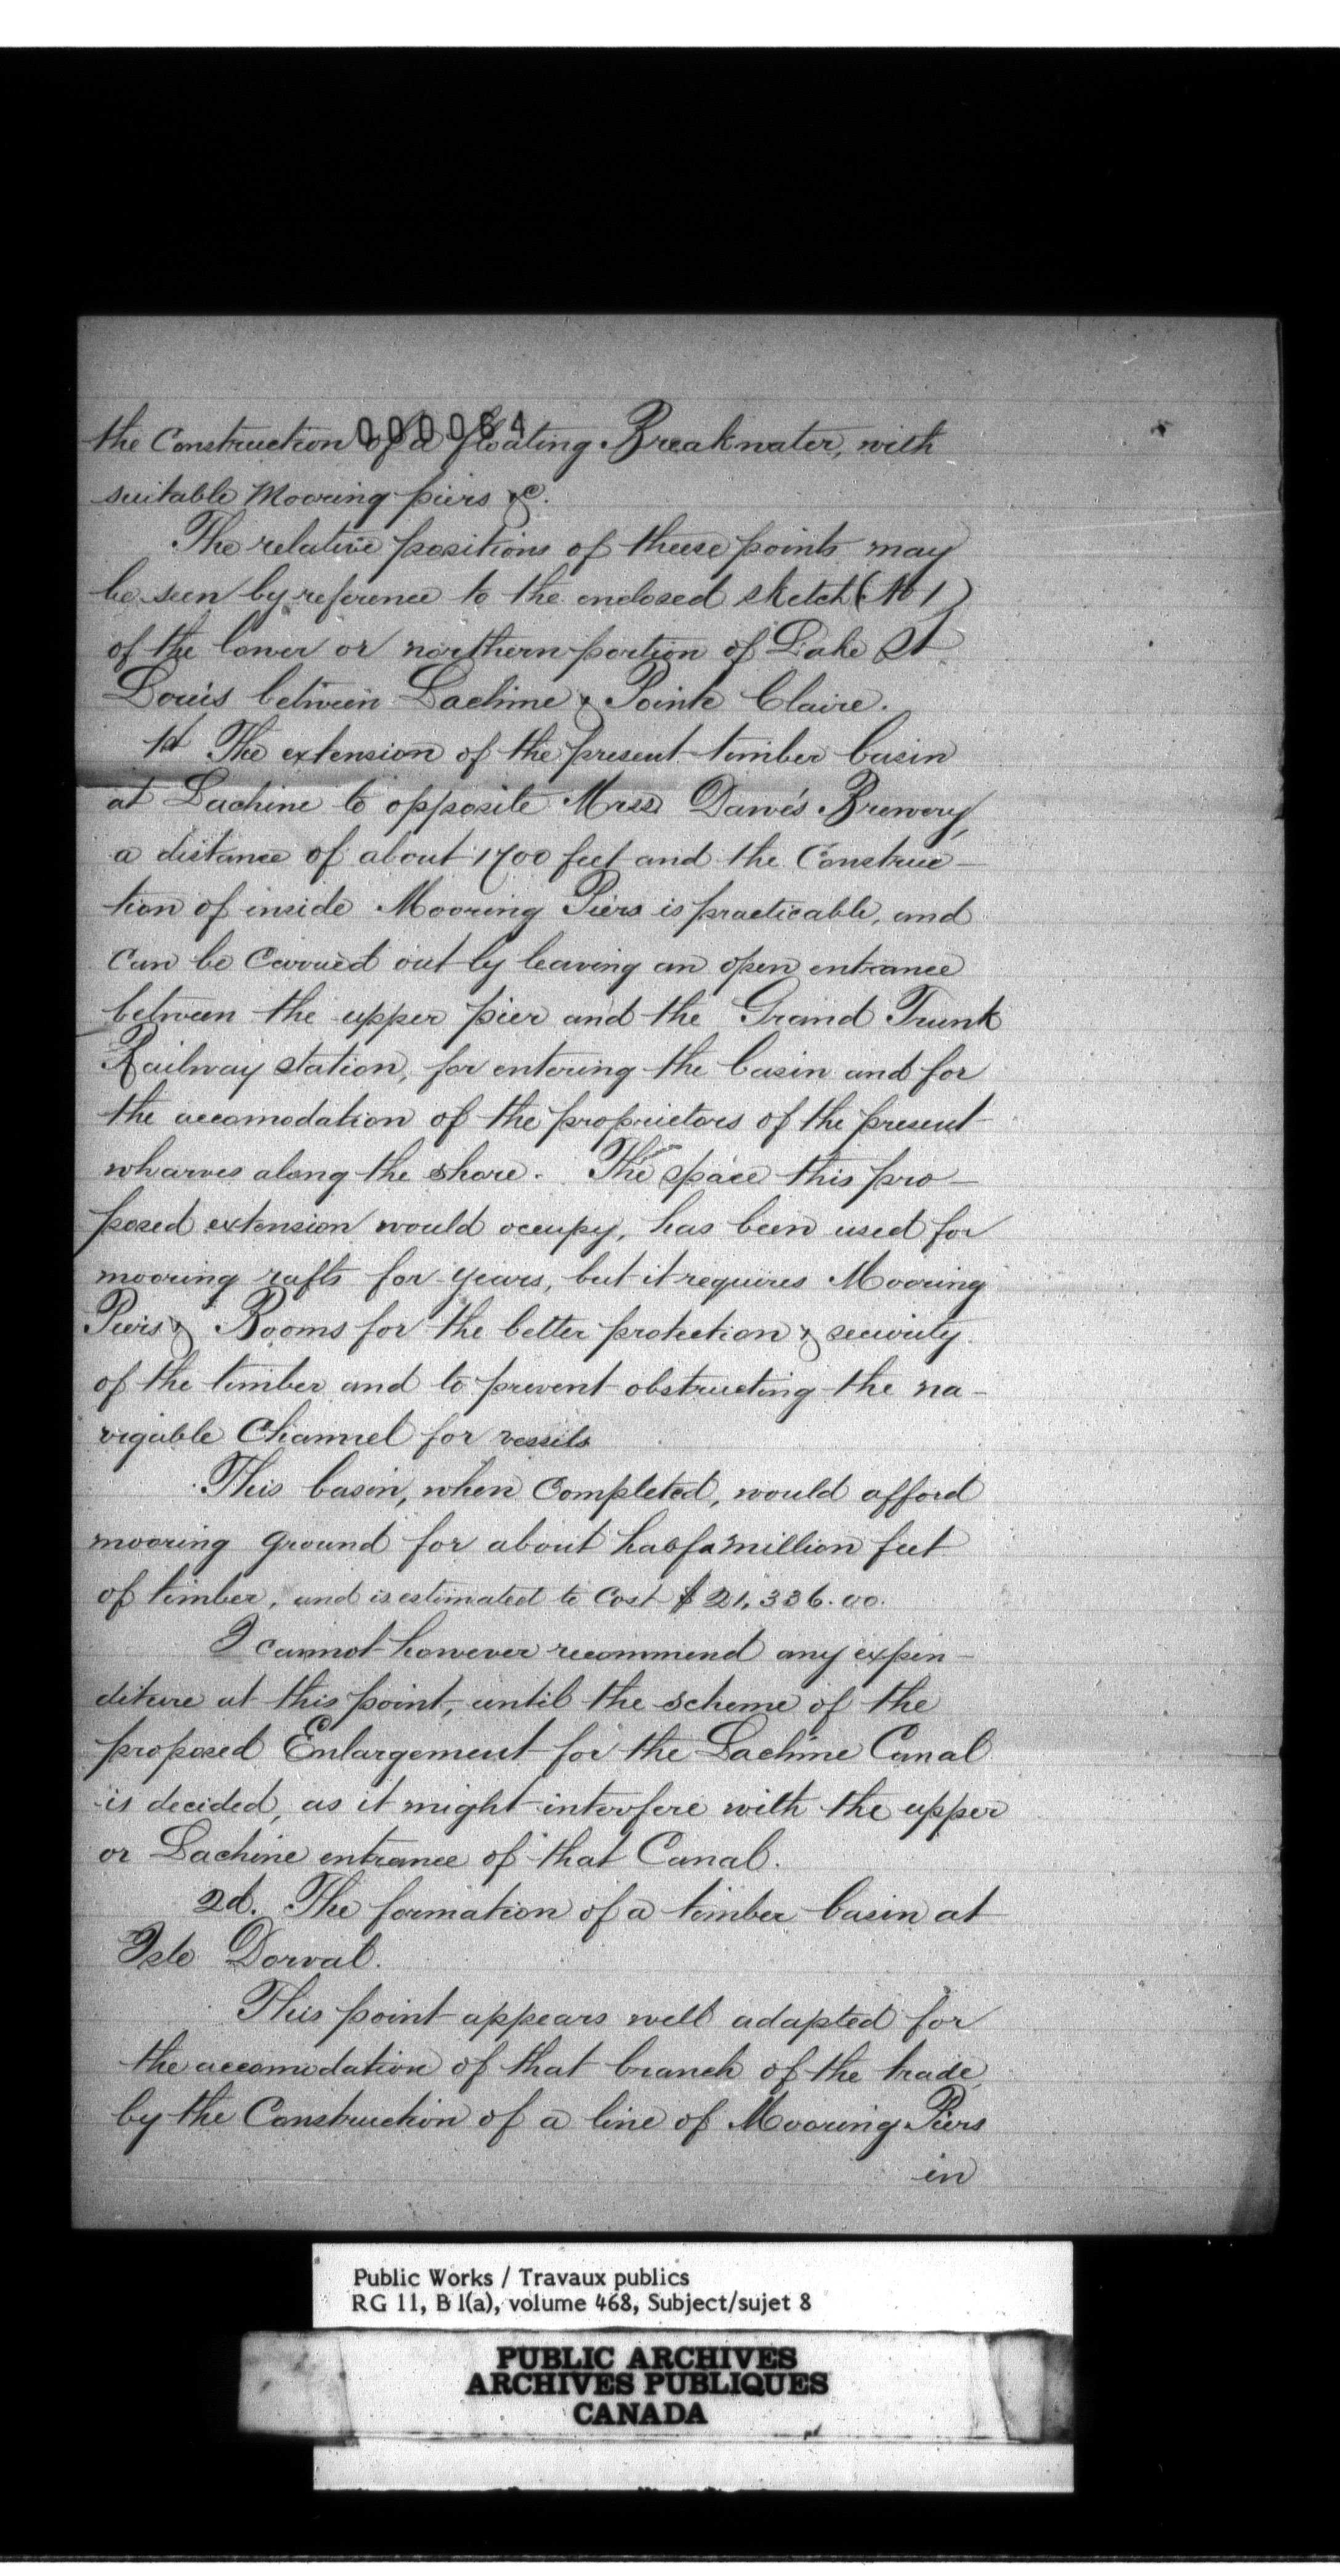 000064
the Construction of a floating Breakwater, with
suitable Mooring piers &c.
The relative positions of these points may
be seen by reference to the enclosed sketch (No 1)
of the lower or northern portion of Lake St
Louis between Lachine & Pointe Claire.
1st The extension of the present timber basin
at Lachine to opposite Mrss Dawe's Brewery,
a distance of about 1700 feet and the Construc-
tion of inside Mooring Piers is practicable, and
can be carried out by leaving an open entrance
between the upper pier and the Grand Trunk
Railway station, for entering the basin and for
the accomodation of the proprietors of the present
wharves along the shore. The space this pro-
posed extension would occupy, has been used for
mooring rafts for years, but it requires Mooring
Piers & Booms for the better protection & security
of the timber and to prevent obstructing the na-
vigable Channel for vessels
This basin, when Completed, would afford
mooring ground for about half a million feet
of timber, and is estimated to Cost $21,336.00.
I cannot however recommend any expen-
diture at this point, until the scheme of the
proposed Enlargement for the Lachine Canal
is decided, as it might interfere with the upper
or Lachine entrance of that Canal.
2d. The formation of a timber basin at
Isle Dorval.
This point appears well adapted for
the accomodation of that branch of the trade
by the Construction of a line of Mooring Piers
in
Public Works / Travaux publics
RG 11, B 1(a), volume 468, Subject/sujet 8
PUBLIC ARCHIVES
ARCHIVES PUBLIQUES
CANADA